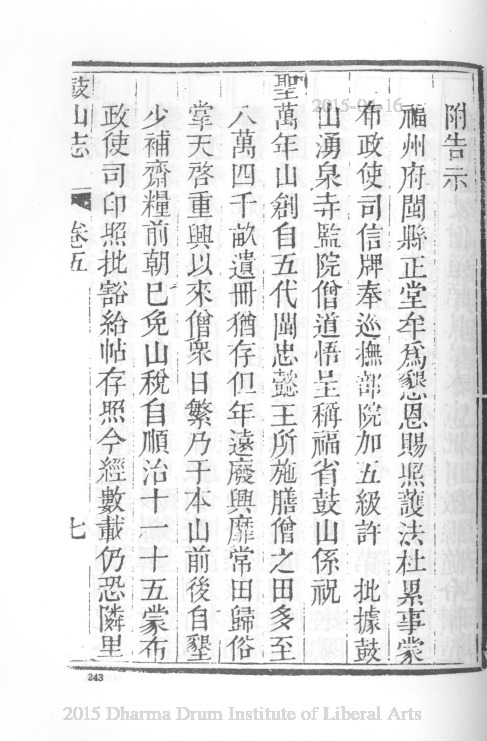 附告示
福州府閩縣正堂牟為懇恩賜照護法杜累事蒙
布政使司信牌奉巡撫部院加五級許 批據鼓
山湧泉寺監院僧道悟呈稱福省鼓山係祝
聖萬年山創自五代閩忠懿王所施膳僧之田多至
八萬四千畝遺冊猶存但年遠廢興靡常田歸俗
掌天啓重興以來僧衆日繁乃于本山前後自墾
少補齋糧前朝已免山稅自順治十一十五蒙布
政使司印照批豁給帖存照今經數載仍恐隣里
鼓山志 卷五 七
243
2015 Dharma Drum Institute of Liberal Arts